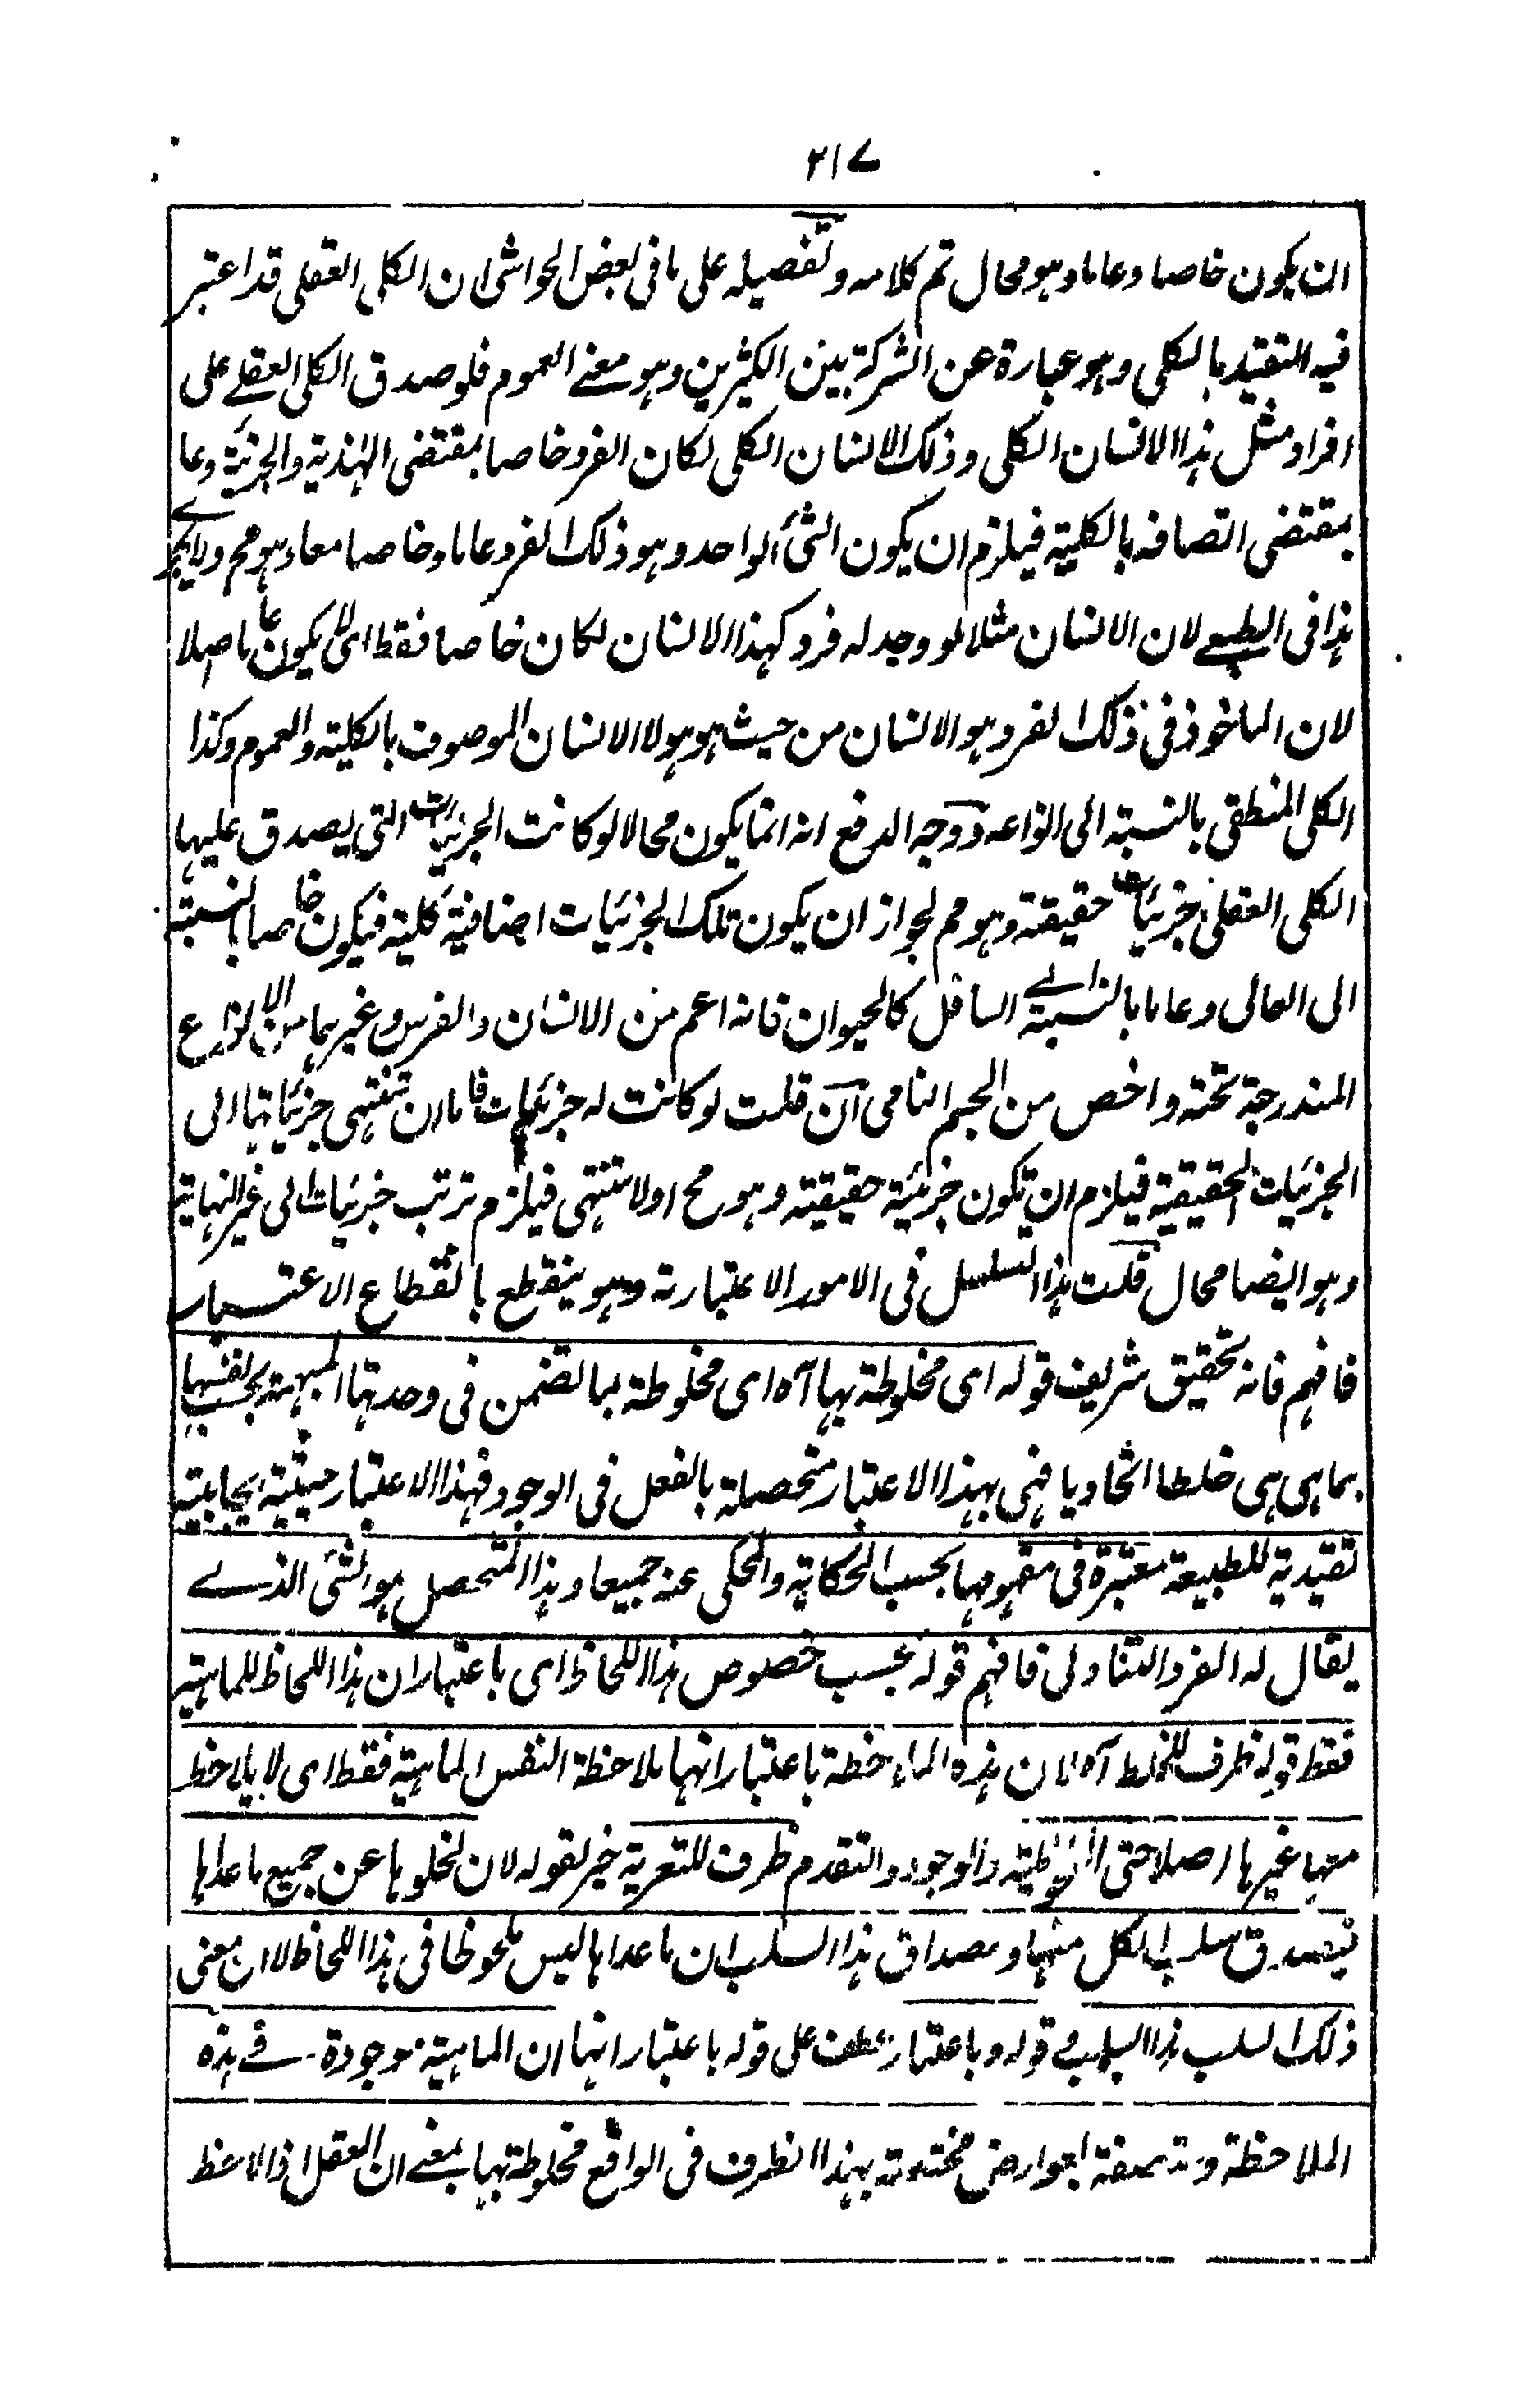 ۲۱۷
ان يكون خاصا وعاما وهو محال تم كلامه وتفصيله على ما فى بعض الحواشى ان الكلى العقلى قد اعتبر
فيه التقييد بالكلى وهو عبارة عن الشركة بين الكثيرين وهو معنے العموم فلو صدق الكلى العقلے على
افراد مثل هذا الانسان الكلى وذلك الانسان الكلى لكان الفرد خاصا بمقتضى الهذية والجزئية وعا
بمقتضى اتصافه بالكلية فيلزم ان يكون الشئ الواحد وهو ذلك الفرد عاما وخاصا معا وهو مح ولا يجرے
هذا فى الطبيعے لان الانسان مثلا لو وجد له فرد كهذا الانسان لكان خاصا فقط اى لا يكون عاما اصلا
لان الماخوذ فى ذلك الفرد هو الانسان من حيث هو هو لا الانسان الموصوف بالكلية والعموم وكذا
الكلى المنطقى بالنسبة الى انواعه ووجه الدفع انه انما يكون محالا لو كانت الجزئيات التى يصدق عليها
الكلى العقلى جزئيات حقيقة وهو مم لجواز ان يكون تلك الجزئيات اضافية كلية فيكون خاصا بالنسبة
الى العالى وعاما بالنسبة الے السافل كالحيوان فانه اعم من الانسان والفرس وغيرهما من الانواع
المندرجة تحته واخص من الجسم النامى ان قلت لو كانت له جزئيات فاما ان تنتهى جزئياتها الى
الجزئيات الحقيقية فيلزم ان يكون جزئية حقيقة وهو مح او لا تنتهى فيلزم ترتب جزئيات الى غير النهاية
وهو ايضا محال قلت هذا التسلسل فى الامور الاعتبارية وهو ينقطع بانقطاع الاعتبار
فافهم فانه تحقيق شريف قوله اى مخلوطة بها آه اى مخلوطة بما تضمن فى وحدتها المبهمة بحسب نفسها
بما هى هى خلطا اتحاديا فهى بهذا الاعتبار متحصلة بالفعل فى الوجود فهذا الاعتبار حيثية ايجابية
تقييدية للطبيعة معتبرة فى مفهومها بحسب الحكاية والمحكى عنه جميعا وهذا المتحصل هو الشئ الذے
يقال له الفرد التناولى فافهم قوله بحسب خصوص هذا اللحاظ اى باعتبار ان هذا اللحاظ للماهية
فقط قوله ظرف للخلط آه لان هذه الملاحظة باعتبار انها ملاحظة النفس الماهية فقط اى لا يلاحظ
معها غيرها اصلا حتى المخلوطية والوجود والتقدم ظرف للتعرية خبر لقوله لان لخلوها عن جميع ماعداها
فيصدق سلب الكل منها ومصداق هذا السلب ان ماعداها ليس ملحوظا فى هذا اللحاظ لا ان معنى
ذلك السلب هذا السلب قوله وباعتبار عطف على قوله باعتبار انها ان الماهية موجودة فے هذه
الملاحظة ومتصفة بعوارض مختصة بهذا الظرف فى الواقع مخلوطة بها بمعنے ان العقل اذا لاحظ